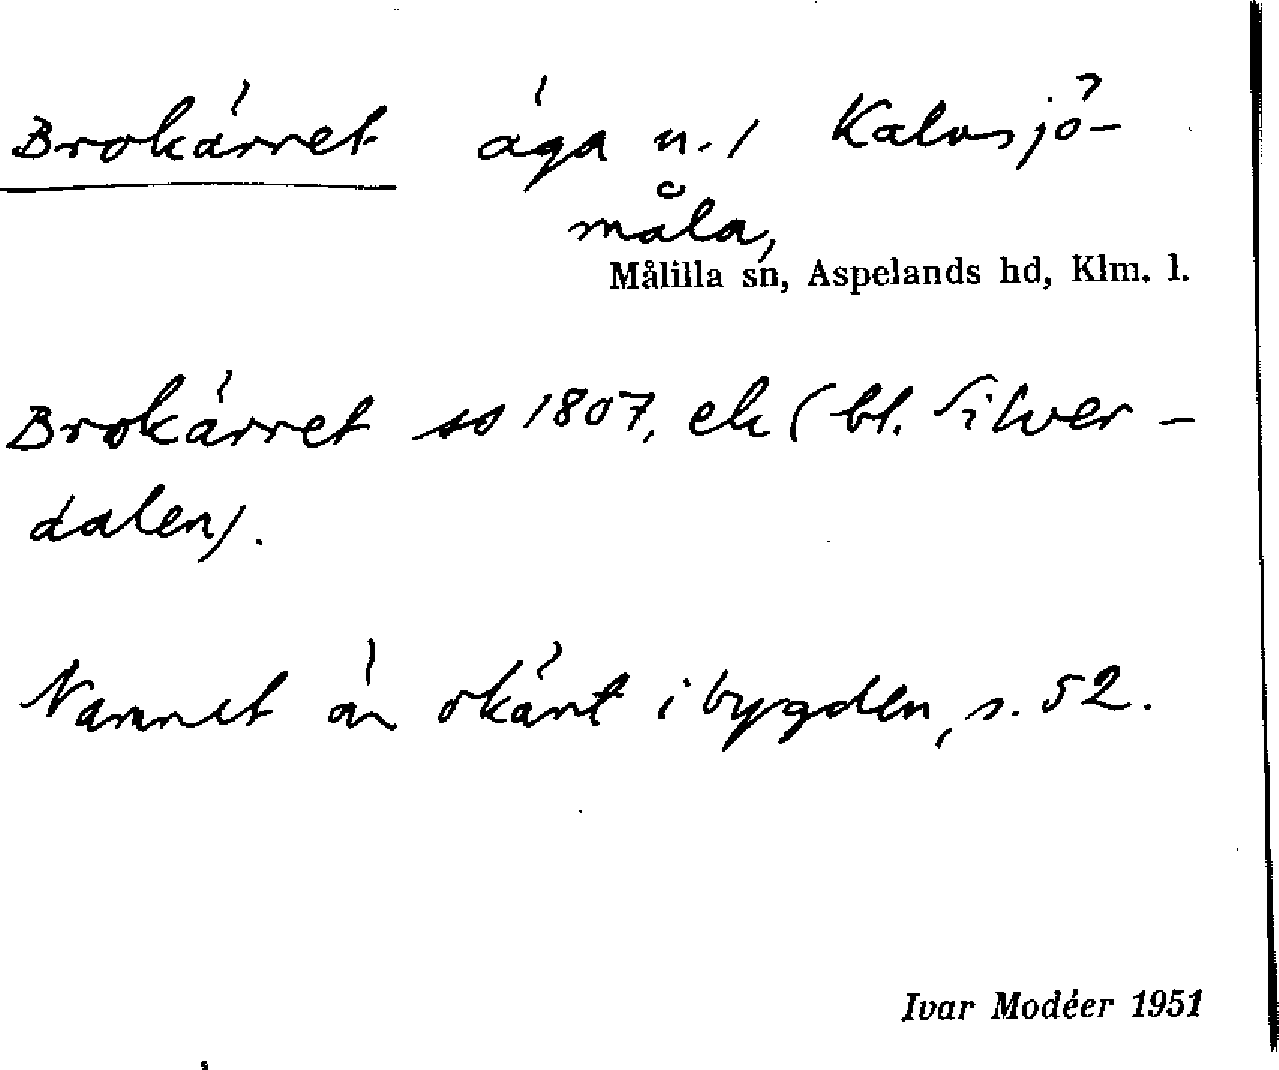 Brokärret äga u. / Kalvsjö-
måla,
Målilla sn, Aspelands hd, Klm. l.
Brokärret so 1807, ek (bl. Silver-
dalen).
Namnet är okänt i bygden, s. 52.
Ivar Modéer 1951